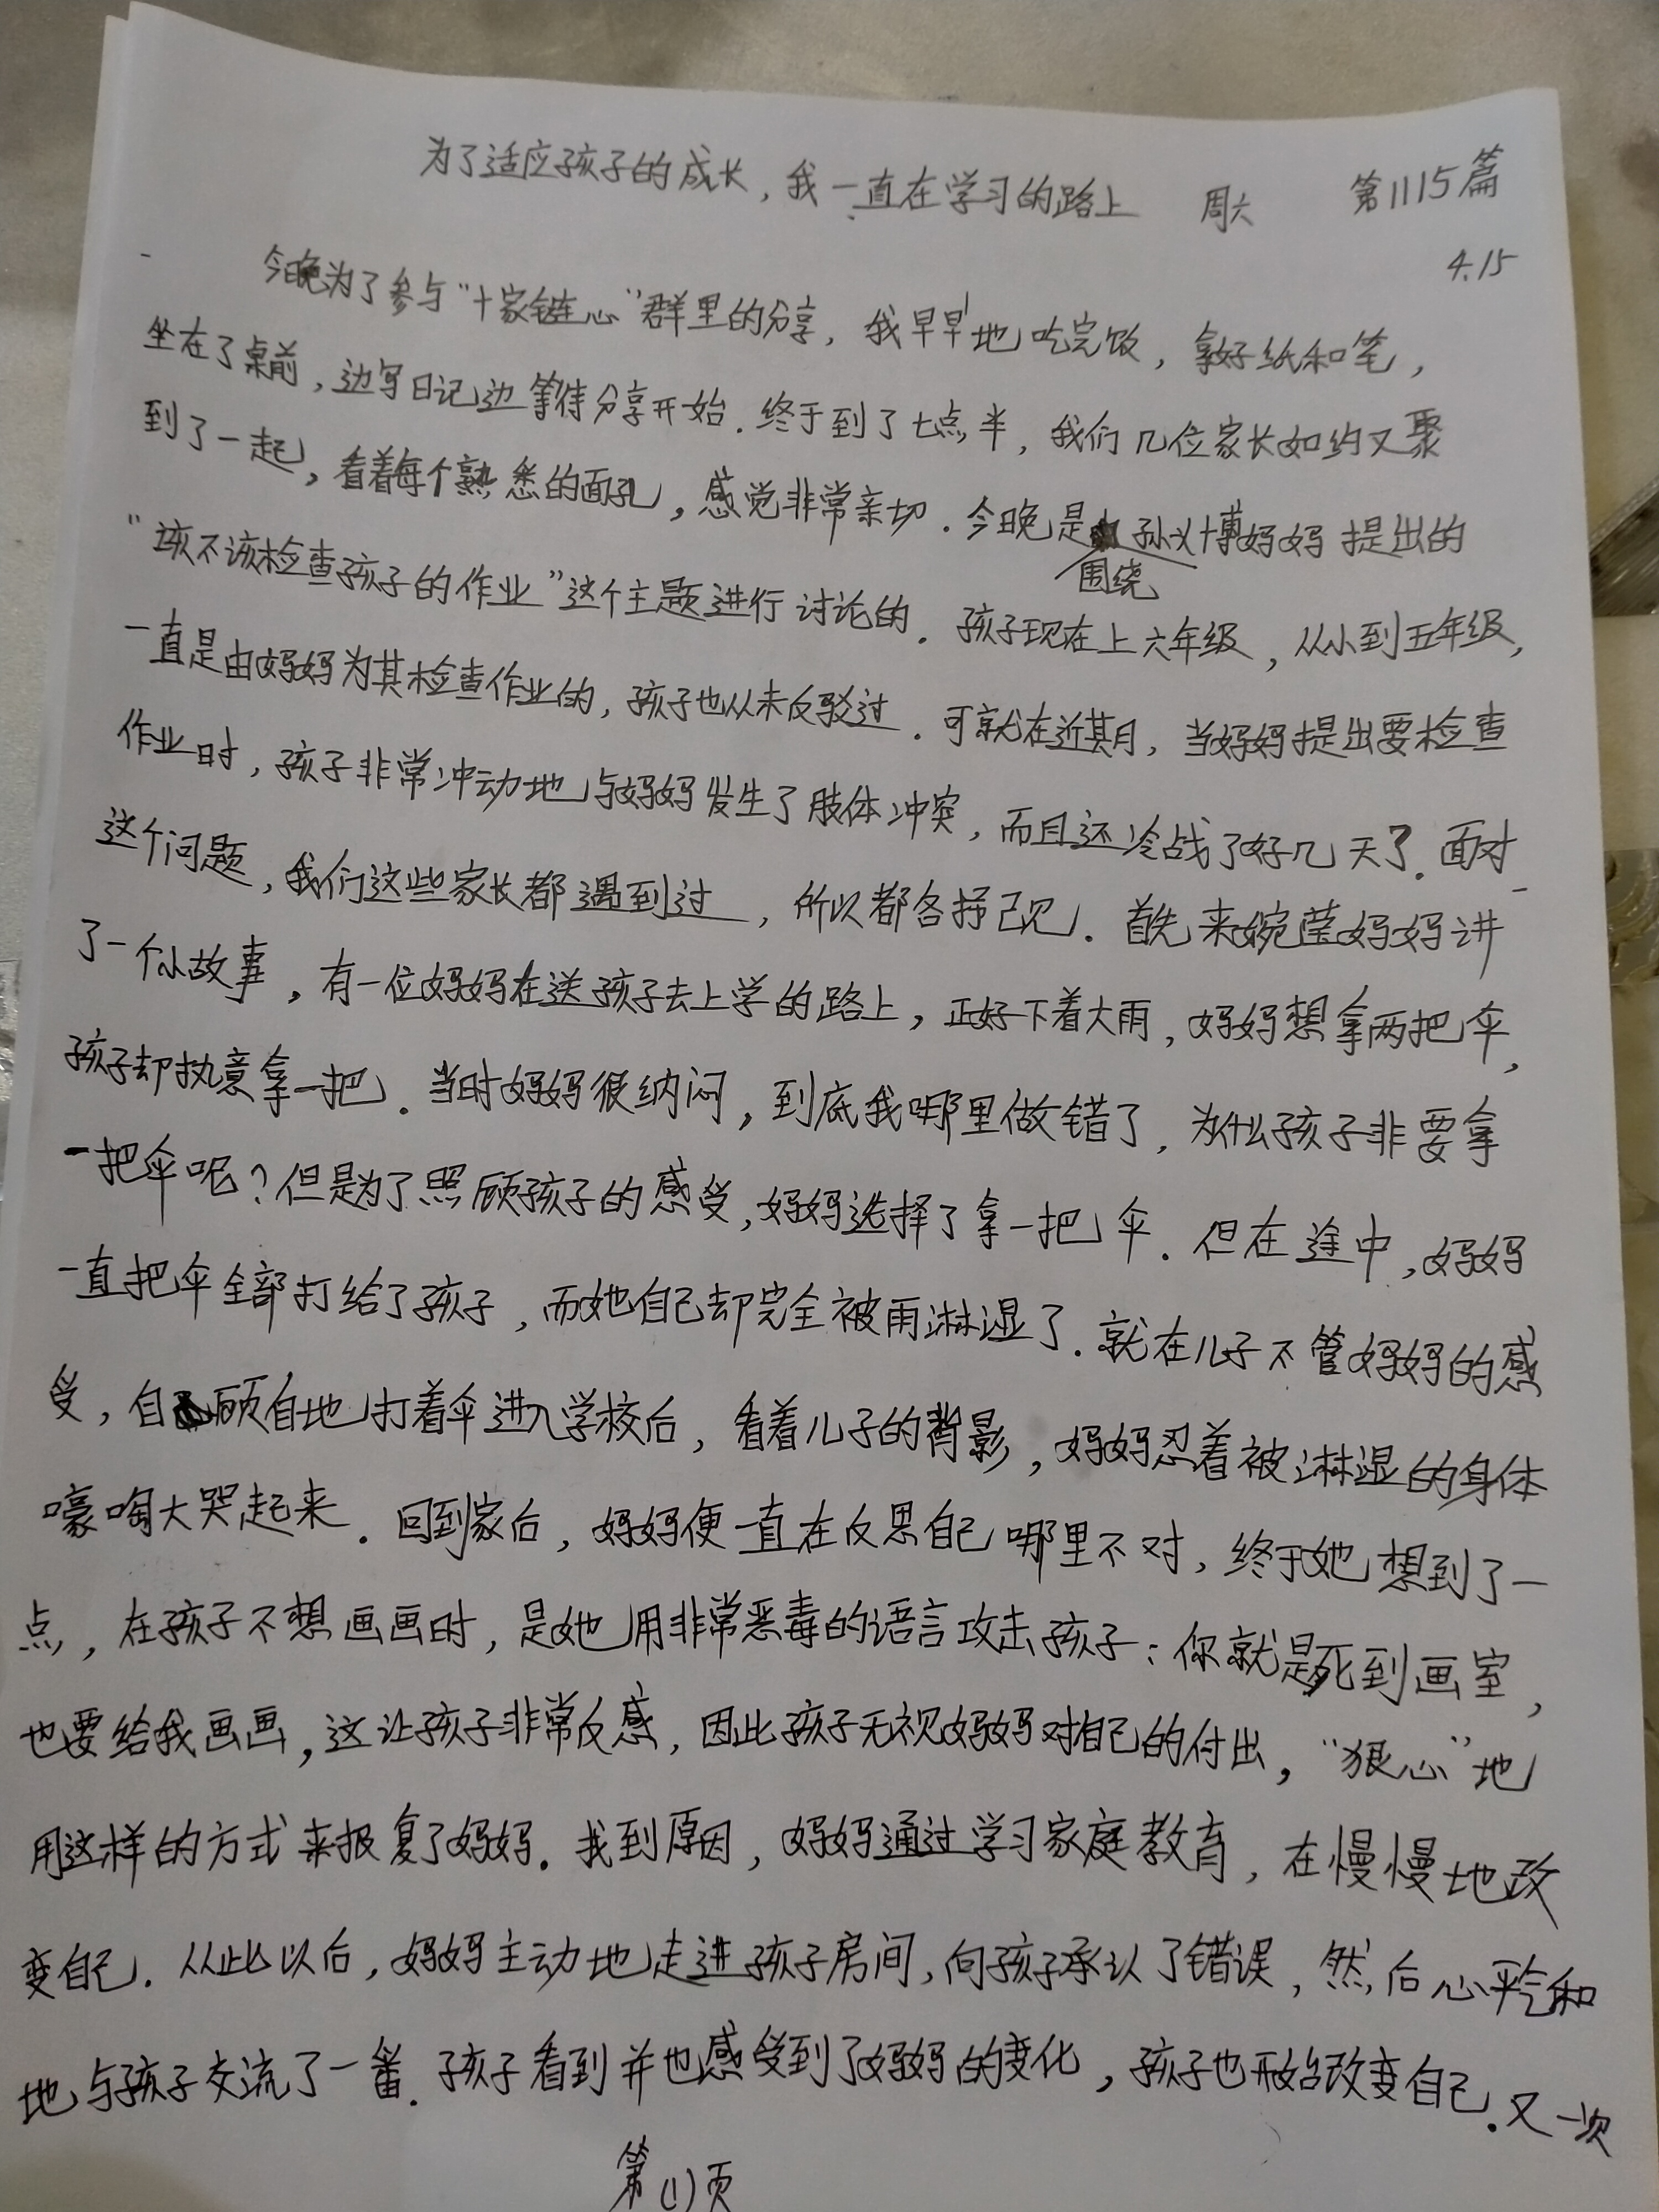 为了适应孩子的成长，我一直在学习的路上 周六 第1115篇
4.15
今晚为了参与“十家链心”群里的分享，我早早地吃完饭，拿好纸和笔，
坐在了桌前，边写日记边等待分享开始．终于到了七点半，我们几位家长如约又聚
到了一起，看着每个熟悉的面孔，感觉非常亲切．今晚是围绕孙义博妈妈提出的
“该不该检查孩子的作业”这个主题进行讨论的．孩子现在上六年级，从小到五年级，
一直是由妈妈为其检查作业的，孩子也从未反驳过．可就在近其月，当妈妈提出要检查
作业时，孩子非常冲动地与妈妈发生了肢体冲突，而且还冷战了好几天了．面对
这个问题，我们这些家长都遇到过，所以都各抒己见．首先来婉莹妈妈讲
了一个小故事，有一位妈妈在送孩子去上学的路上，正好下着大雨，妈妈想拿两把伞，
孩子却执意拿一把．当时妈妈很纳闷，到底我哪里做错了，为什么孩子非要拿
一把伞呢？但是为了照顾孩子的感受，妈妈选择了拿一把伞．但在途中，妈妈
一直把伞全部打给了孩子，而她自己却完全被雨淋湿了．就在儿子不管妈妈的感
受，自顾自地打着伞进入学校后，看着儿子的背影，妈妈忍着被淋湿的身体
嚎啕大哭起来．回到家后，妈妈便一直在反思自己哪里不对，终于她想到了一
点，在孩子不想画画时，是她用非常恶毒的语言攻击孩子：你就是死到画室，
也要给我画画，这让孩子非常反感，因此孩子无视妈妈对自己的付出，“狠心”地
用这样的方式来报复了妈妈．找到原因，妈妈通过学习家庭教育，在慢慢地改
变自己．从此以后，妈妈主动地走进孩子房间，向孩子承认了错误，然后心平气和
地与孩子交流了一番．孩子看到并也感受到了妈妈的变化，孩子也开始改变自己．又一次
第(1)页